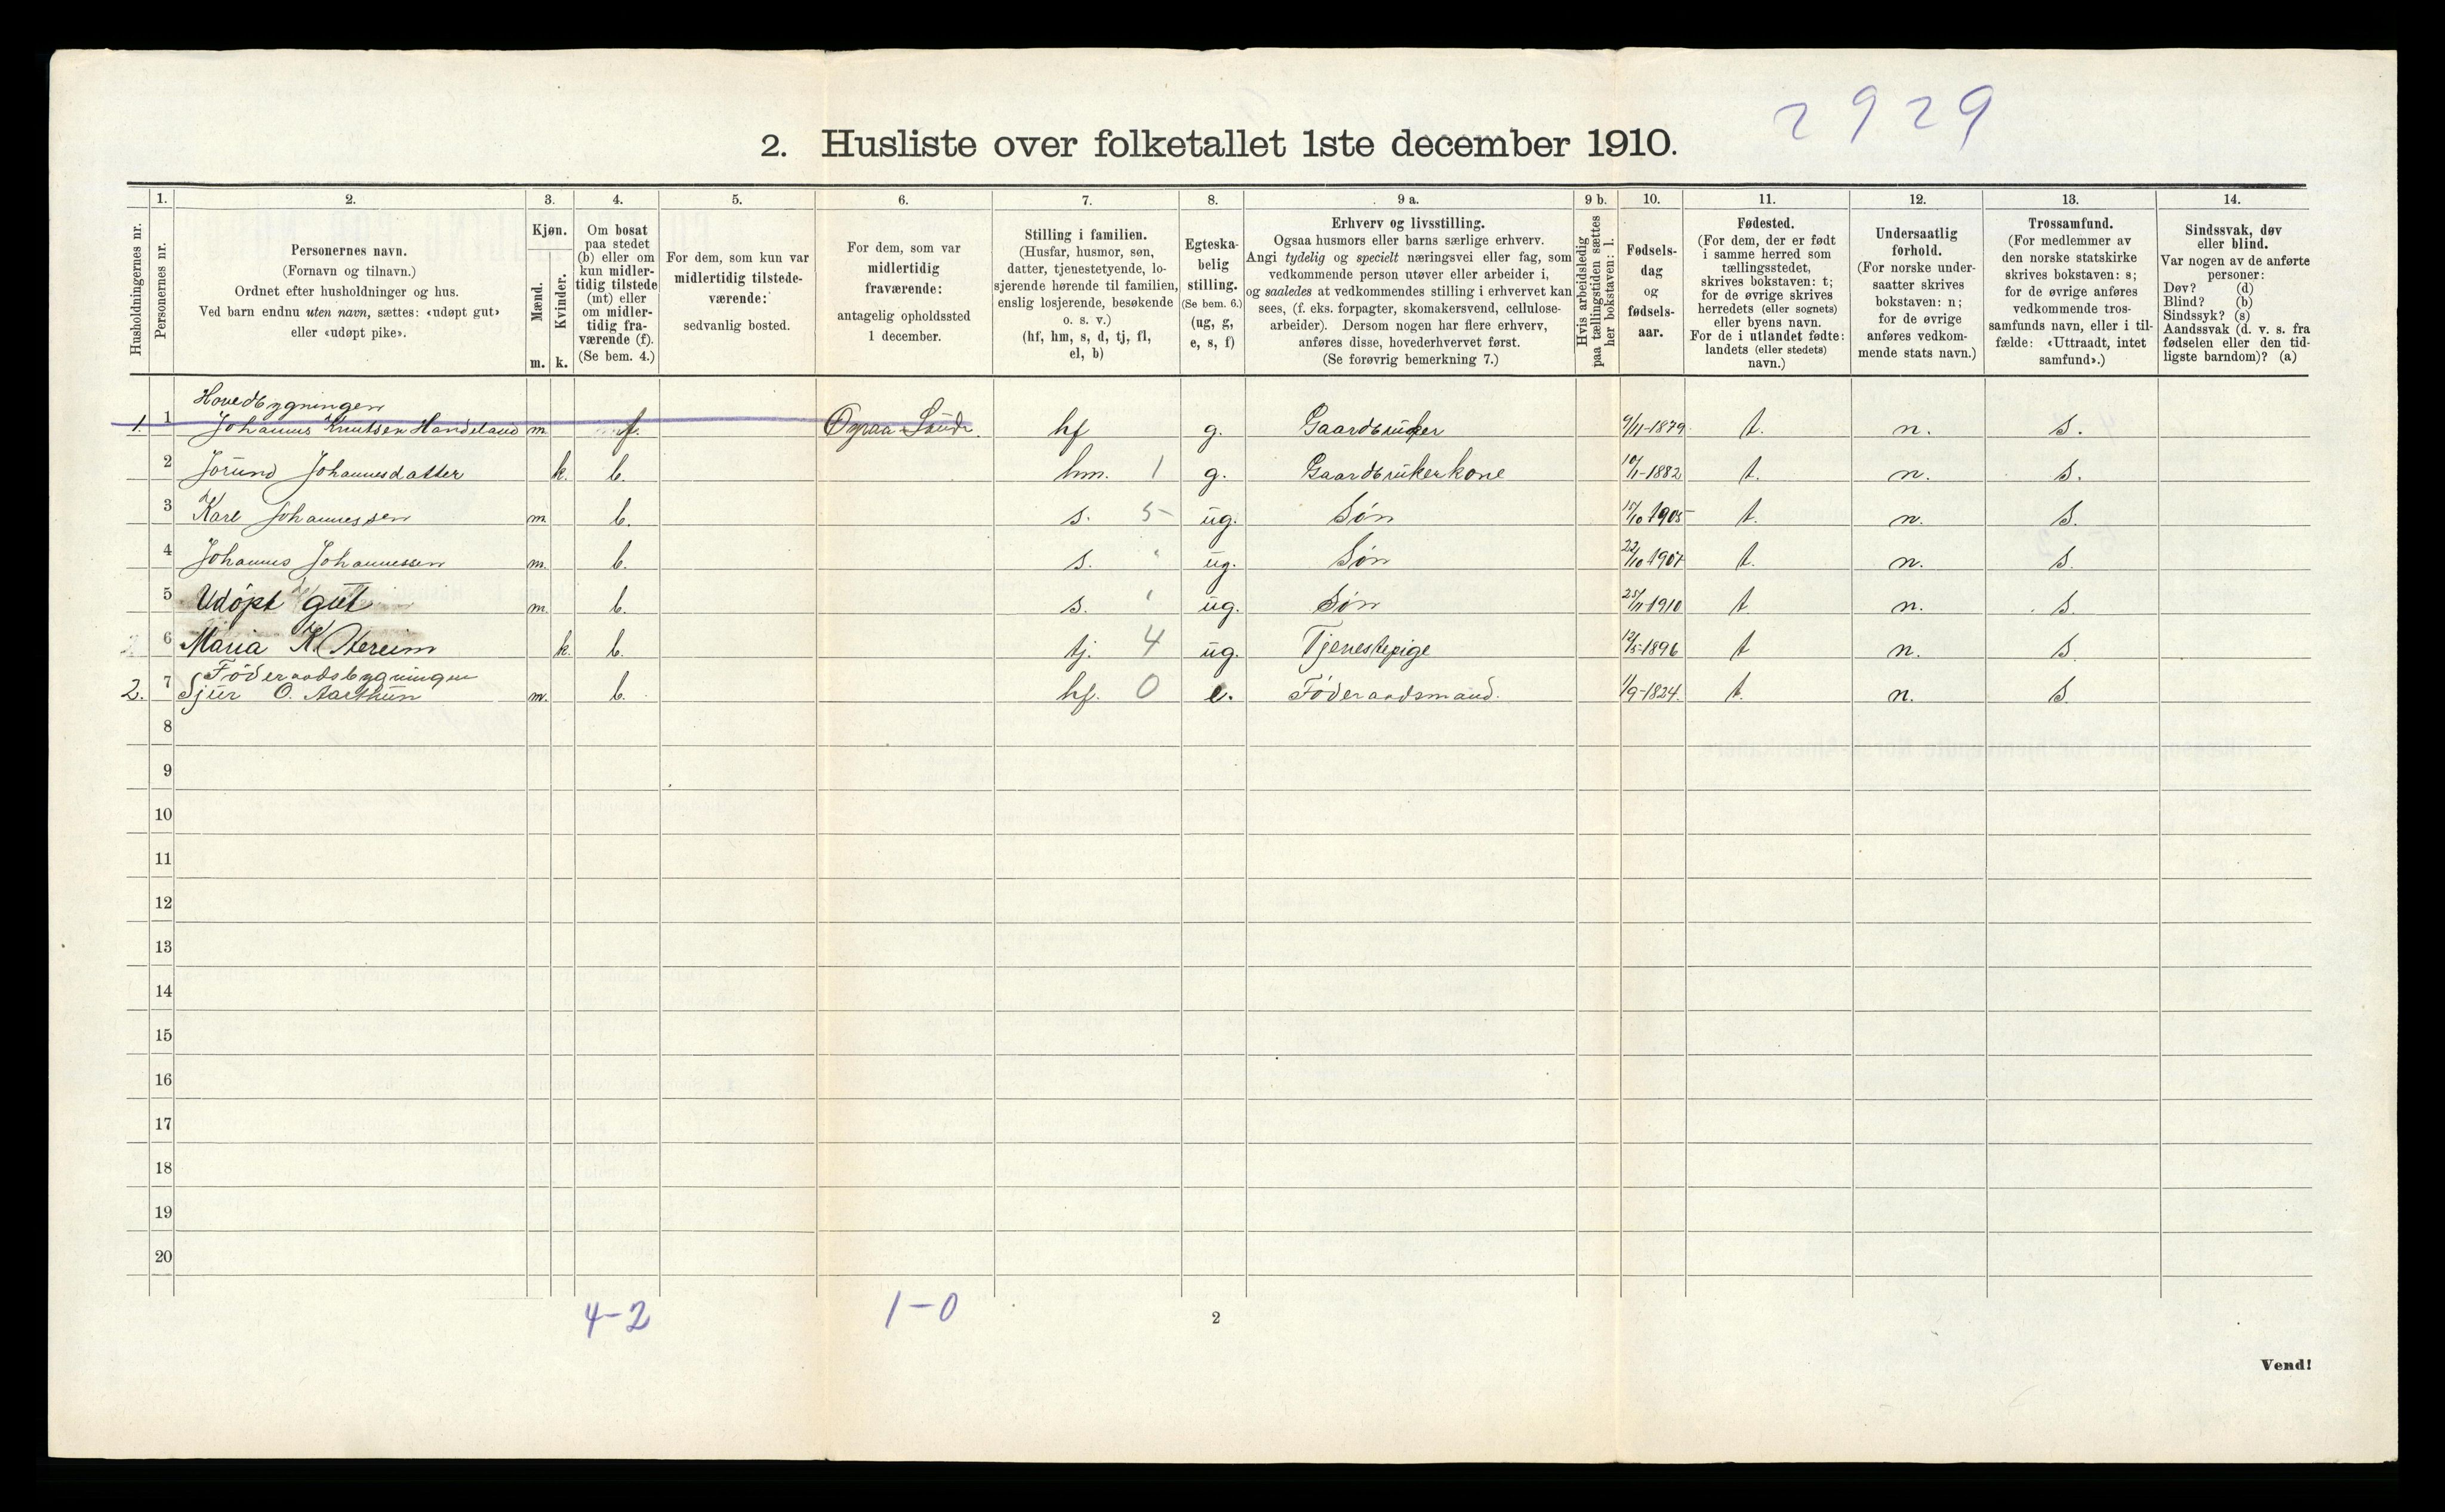 2929
2. Husliste over folketallet 1ste december 1910.
Husholdningernes nr.
1.
Personernes nr.
2.
Personernes navn.
(Fornavn og tilnavn.)
Ordnet efter husholdninger og hus.
Ved barn endnu uten navn, sættes: «udøpt gut»
eller «udøpt pike».
3.
Kjøn.
Mænd.
Kvinder.
m. k.
4.
Om bosat
paa stedet
(b) eller om
kun midler-
tidig tilstede
(mt) eller
om midler-
tidig fra-
værende (f).
(Se bem. 4.)
5.
For dem, som kun var
midlertidig tilstede-
værende:
sedvanlig bosted.
6.
For dem, som var
midlertidig
fraværende:
antagelig opholdssted
1 december.
7.
Stilling i familien.
(Husfar, husmor, søn,
datter, tjenestetyende, lo-
sjerende hørende til familien,
enslig losjerende, besøkende
o. s. v.)
(hf, hm, s, d, tj, fl,
el, b)
8.
Egteska-
belig
stilling.
(Se bem. 6.)
(ug, g,
e, s, f)
9 a.
Erhverv og livsstilling.
Ogsaa husmors eller barns særlige erhverv.
Angi tydelig og specielt næringsvei eller fag, som
vedkommende person utøver eller arbeider i,
og saaledes at vedkommendes stilling i erhvervet kan
sees, (f. eks. forpagter, skomakersvend, cellulose-
arbeider). Dersom nogen har flere erhverv,
anføres disse, hovederhvervet først.
(Se forøvrig bemerkning 7.)
9 b.
Hvis arbeidsledig
paa tællingstiden sættes
her bokstaven: l.
10.
Fødsels-
dag
og
fødsels-
aar.
11.
Fødested.
(For dem, der er født
i samme herred som
tællingsstedet,
skrives bokstaven: t;
for de øvrige skrives
herredets (eller sognets)
eller byens navn.
For de i utlandet fødte:
landets (eller stedets)
navn.)
12.
Undersaatlig
forhold.
(For norske under-
saatter skrives
bokstaven: n;
for de øvrige
anføres vedkom-
mende stats navn.)
13.
Trossamfund.
(For medlemmer av
den norske statskirke
skrives bokstaven: s;
for de øvrige anføres
vedkommende tros-
samfunds navn, eller i til-
fælde: «Uttraadt, intet
samfund».)
14.
Sindssvak, døv
eller blind.
Var nogen av de anførte
personer:
Døv? (d)
Blind? (b)
Sindssyk? (s)
Aandssvak (d. v. s. fra
fødselen eller den tid-
ligste barndom)? (a)
Hovedbygningen
1. 1 Johannes Knutsen Handeland m. f. hf g. Gaardbruker 9/11-1879 t. n. s.
2 Jorund Johannesdatter k. b. hm. 1 g. Gaardbrukerkone 10/1-1882 t. n. s.
3 Karl Johannessen m. b. s. 5 ug. Søn 15/10 1905 t. n. s.
4 Johannes Johannessen m. b. s. " ug. Søn 22/10 1907 t. n. s.
5 Udøpt gut m. b. s. " ug. Søn 25/11 1910 t n. s.
6 Maria K. b. k. tj. 4 ug. Tjenestepige 12/5-1896 t n. s.
Föderaadsbygningen
2. 7 Sjur O. Aarthun m. b. hf. 0 e. Föderaadsmand. 1/9-1824. t. n. s.
8
9
10
11
12
13
14
15
16
17
18
19
20
4-2 1-0
2
Vend!